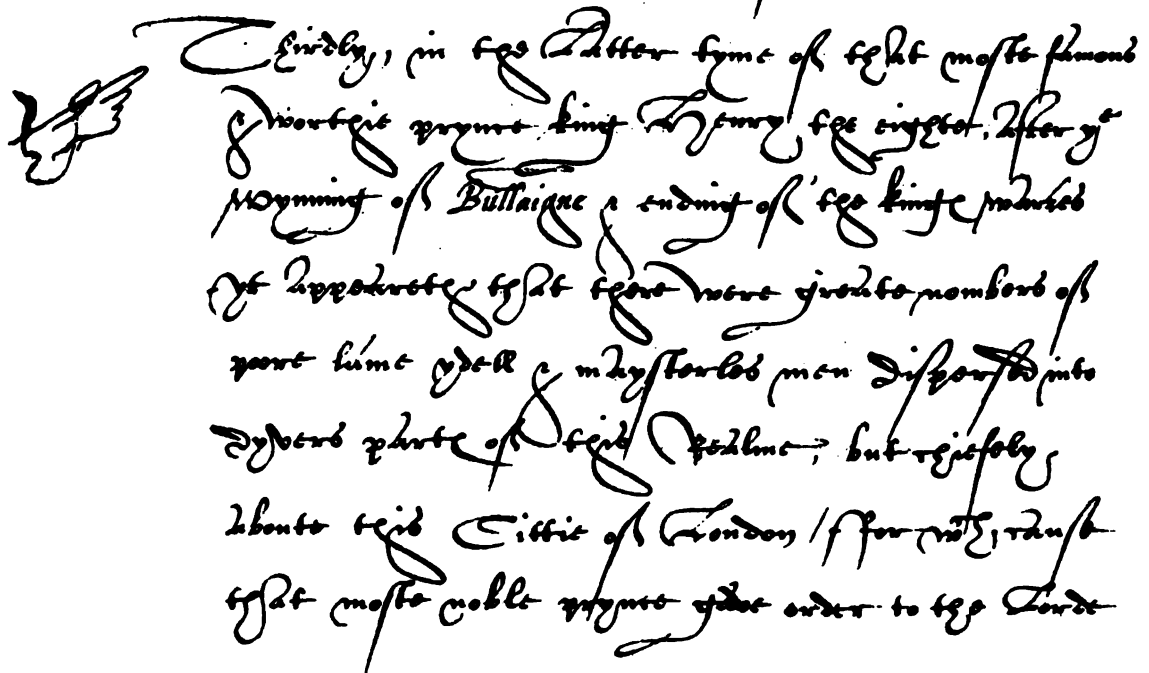 Thirdly, in the Latter tyme of that moste famous
& worthie prynce king Henry the eighte, After ye
Wynning of Bullaigne & ending of the kings warkes
yt appeareth that there were greate nombers of
poore lame ydell & maysterles men dispersed into
dyvers parts of this Realme, but chiefely
aboute this Cittie of London / ffor wch cause
that moste noble prynce gave order to the Lorde